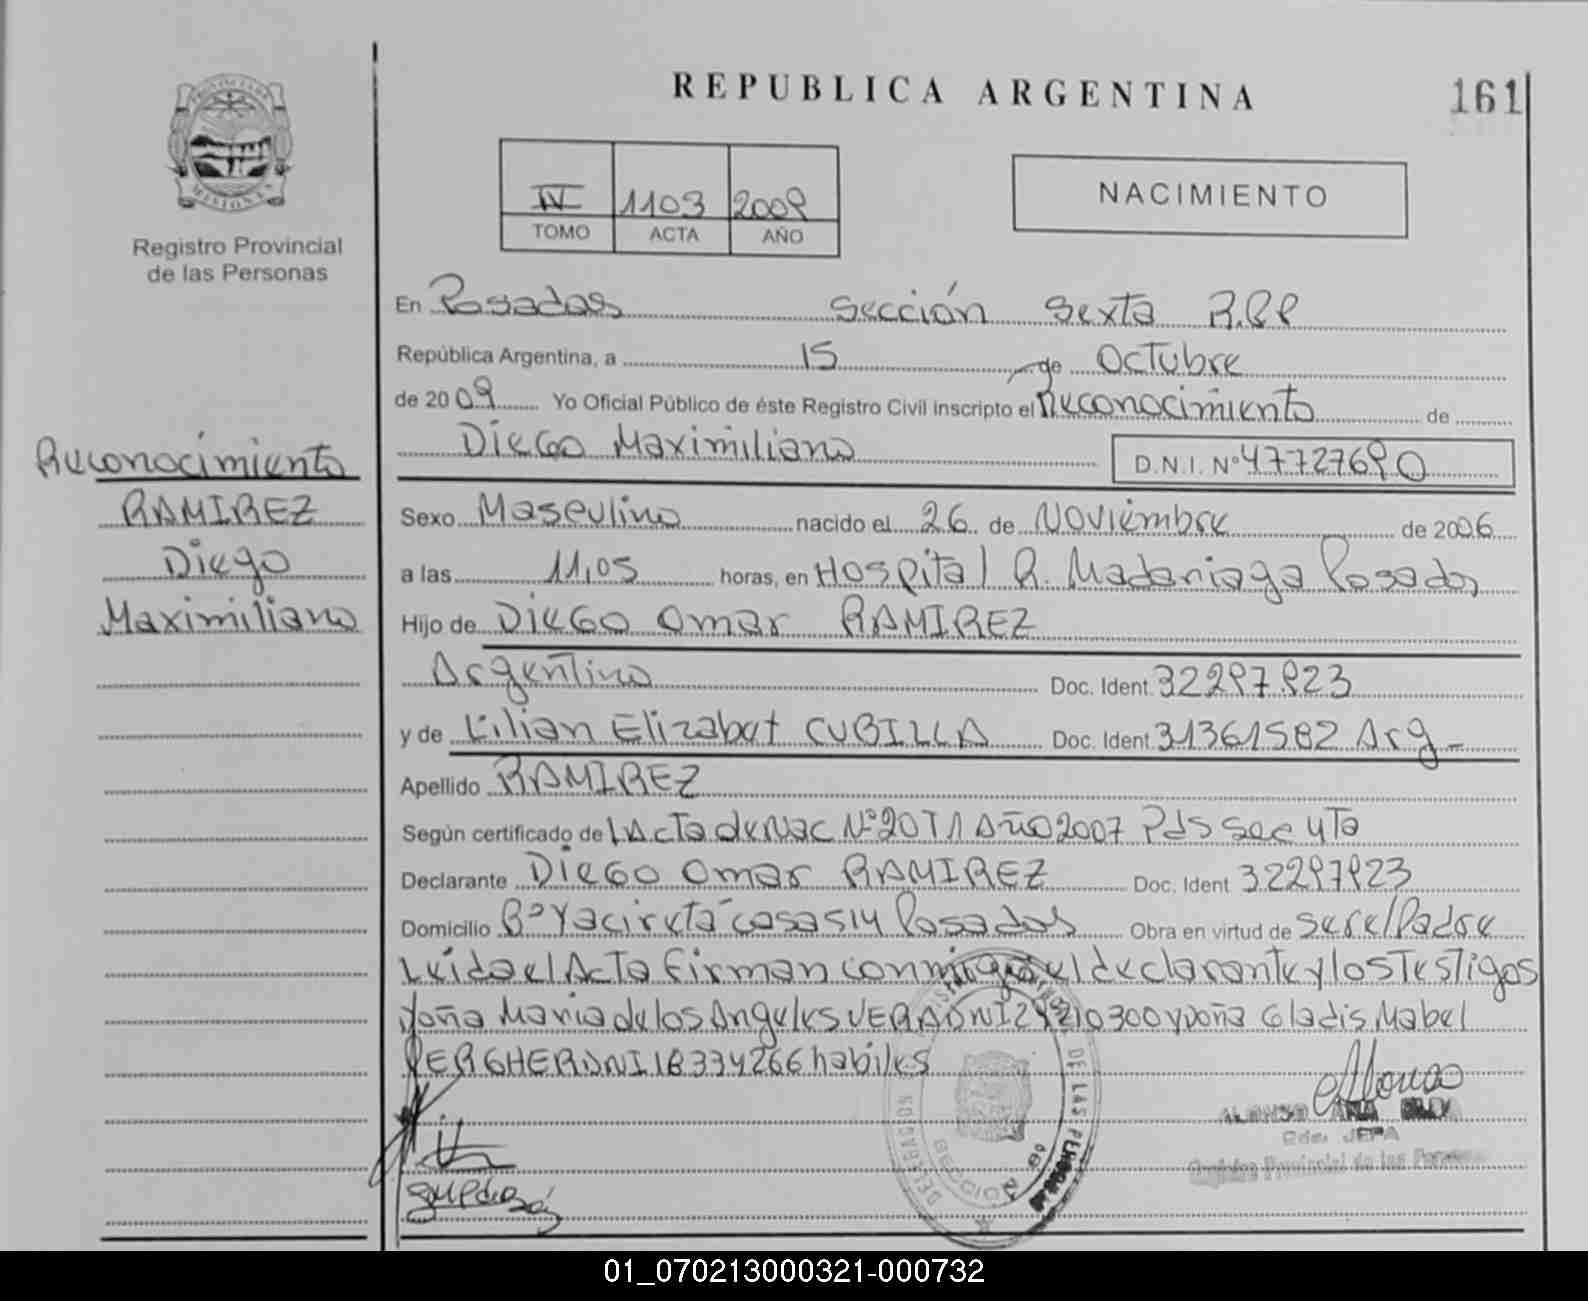 REPUBLICA ARGENTINA
161
PROVINCIA DE MISIONES
Registro Provincial
de las Personas
IV 1103 2009
TOMO ACTA AÑO
NACIMIENTO
En Posadas Sección Sexta
República Argentina, a 15 de Octubre
de 2009 Yo Oficial Público de éste Registro Civil inscripto el Reconocimiento de
Diego Maximiliano D.N.I. Nº 47727690
Reconocimiento
RAMIREZ
Diego
Maximiliano
Sexo Masculino nacido el 26 de Noviembre de 2006
a las 11,05 horas, en Hospital R. Madariaga Posadas
Hijo de Diego Omar RAMIREZ
Argentino Doc. Ident. 32297923
y de Lilian Elizabat CUBILLA Doc. Ident. 31361582 Arg-
Apellido RAMIREZ
Según certificado de l Acta de Nac Nº 20 T1 Año 2007 Pds Sec 4Ta
Declarante Diego Omar RAMIREZ Doc. Ident. 32297923
Domicilio Bº Yacireta casa 514 Posadas Obra en virtud de Ser el Padre
Leida el Acta firman conmigo el declarante y los Testigos
doña Maria de los Angeles VERA DNI 29210300 y doña Gladis Mabel
PERGHER DNI 18334266 habiles
ALONSO ANA
JEFA
Registro Provincial de las Personas
DE LAS PERSONAS
01_070213000321-000732